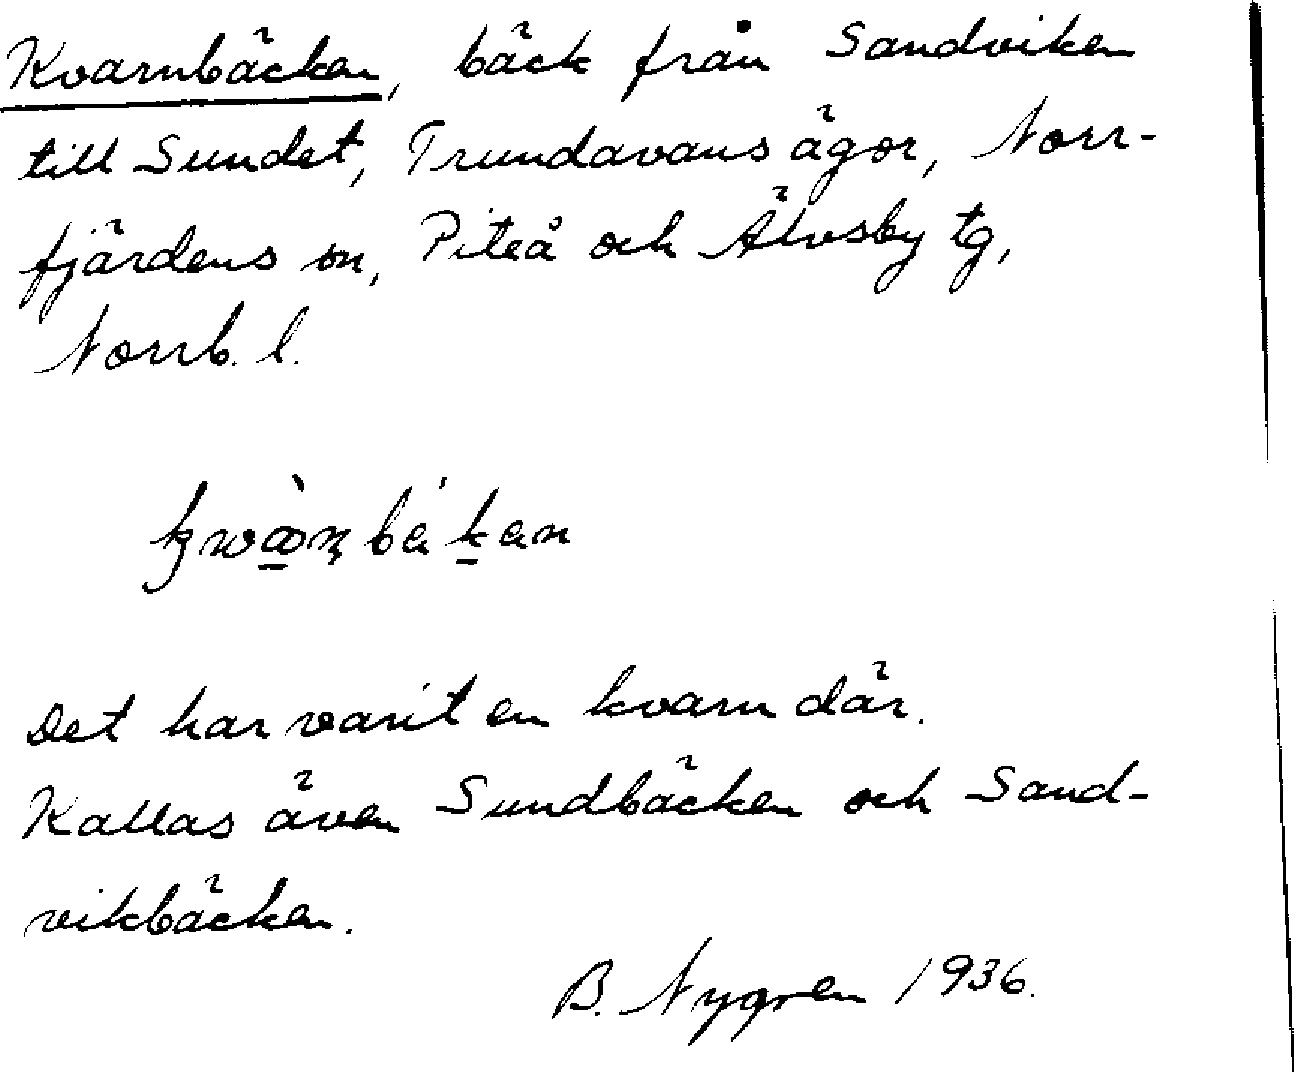 Kvarnbäcken, bäck från Sandviken
till Sundet, Trundavans ägor, Norr-
fjärdens sn, Piteå och Älvsby tg,
Norrb. l.
Det har varit en kvarn där.
Kallas även Sundbäcken och Sand-
vikbäcken.
B. Nygren 1936.